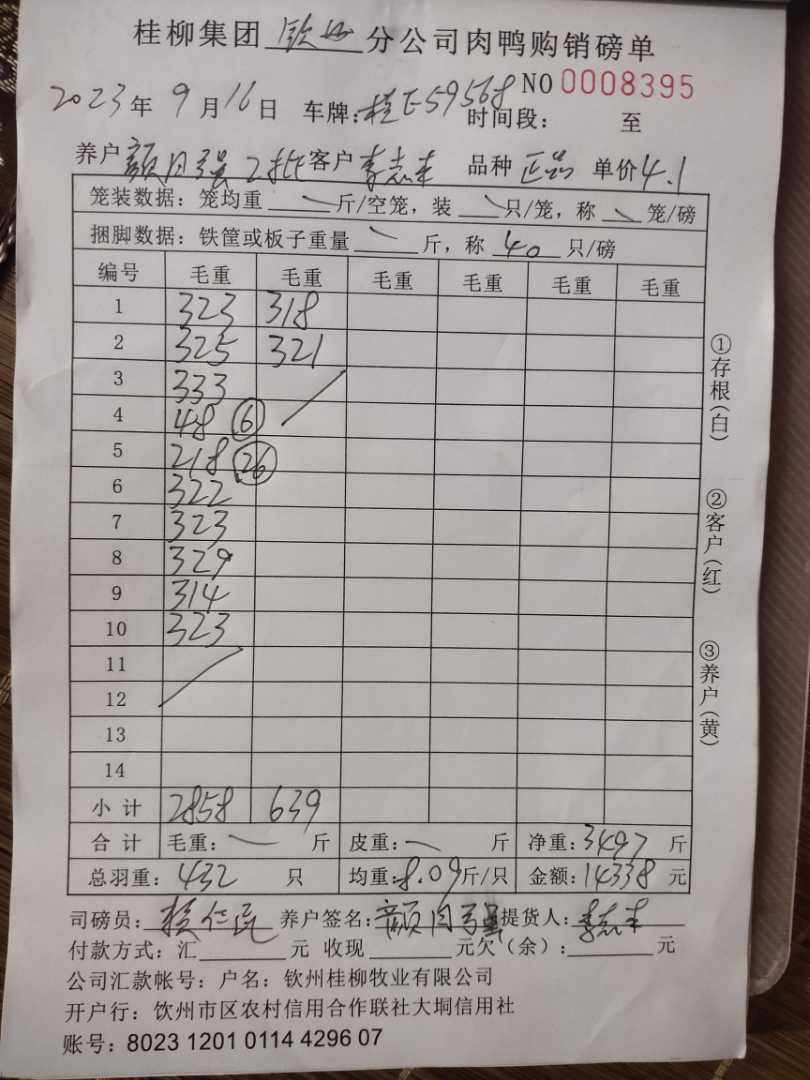 桂柳集团 钦州 分公司肉鸭购销磅单
NO 0008395
2023年 9月16日 车牌:桂E59568 时间段: 至
养户 颜月强2批 客户 李志丰 品种 正品 单价4.1
笼装数据: 笼均重 斤/空笼, 装 只/笼, 称 笼/磅
捆脚数据: 铁筐或板子重量 斤, 称 40 只/磅
编号 毛重 毛重 毛重 毛重 毛重 毛重
1 323 318
2 325 321
3 333
4 48 ⑥
5 218 ㉖
6 322
7 323
8 329
9 314
10 323
11
12
13
14
小计 2858 639
合计 毛重: 斤 皮重: 斤 净重:3497 斤
总羽重: 432 只 均重:8.09斤/只 金额:14338元
司磅员: 仁 养户签名: 颜月强 提货人: 李志丰
付款方式: 汇 元 收现 元欠(余): 元
公司汇款帐号: 户名: 钦州桂柳牧业有限公司
开户行: 饮州市区农村信用合作联社大垌信用社
账号: 8023 1201 0114 4296 07
①存根(白)
②客户(红)
③养户(黄)